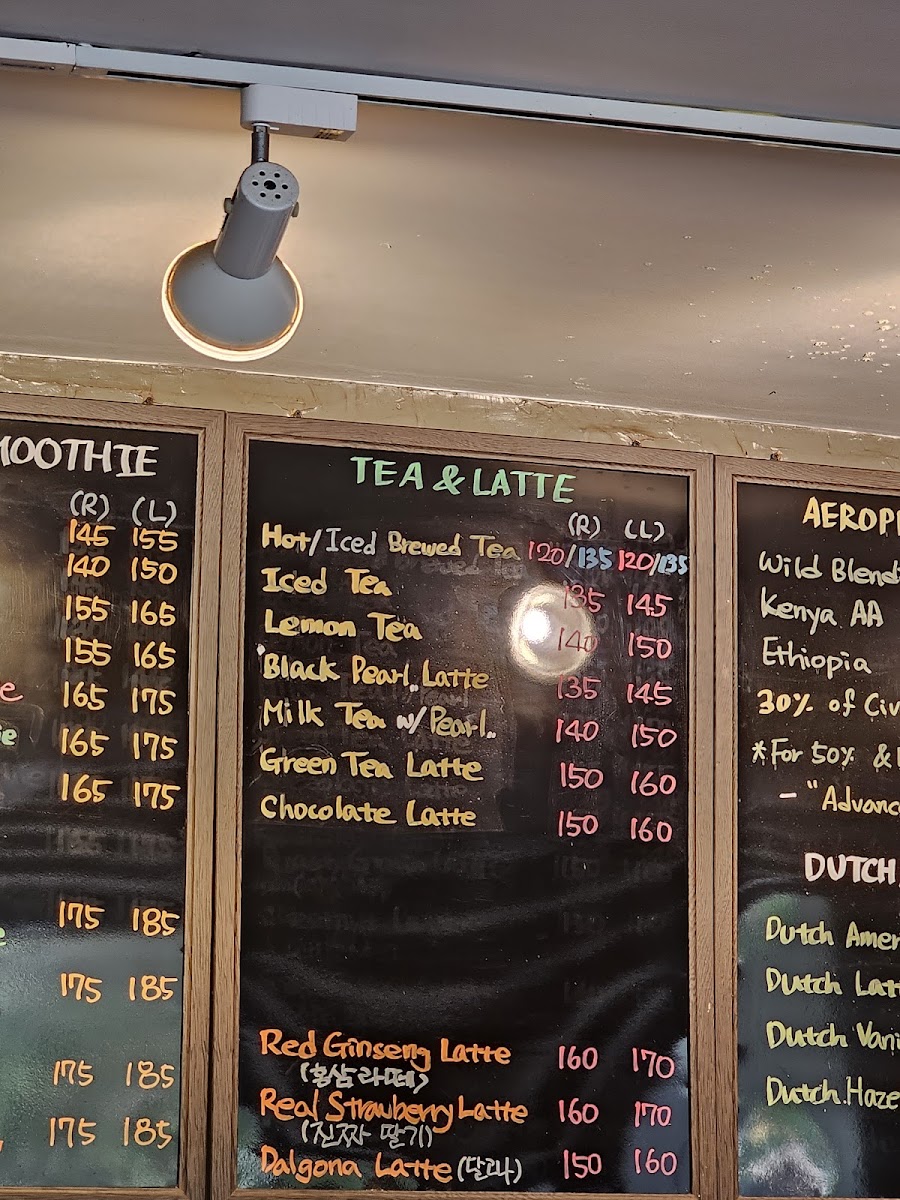 MOOTHIE
(R) (L)
145 155
140 150
155 165
155 165
165 175
165 175
165 175
175 185
175 185
175 185
175 185
TEA & LATTE
(R) (L)
Hot/Iced Brewed Tea 120/135 120/135
Iced Tea 135 145
Lemon Tea 140 150
Black Pearl Latte 135 145
Milk Tea w/ Pearl 140 150
Green Tea Latte 150 160
Chocolate Latte 150 160
Red Ginseng Latte 160 170
(홍삼라떼)
Real Strawberry Latte 160 170
(진짜 딸기)
Dalgona Latte (달고나) 150 160
AEROP
Wild Blend
Kenya AA
Ethiopia
30% of Civ
*For 50% &
- "Advanc
DUTCH
Dutch Amer
Dutch Lat
Dutch Vani
Dutch Haze